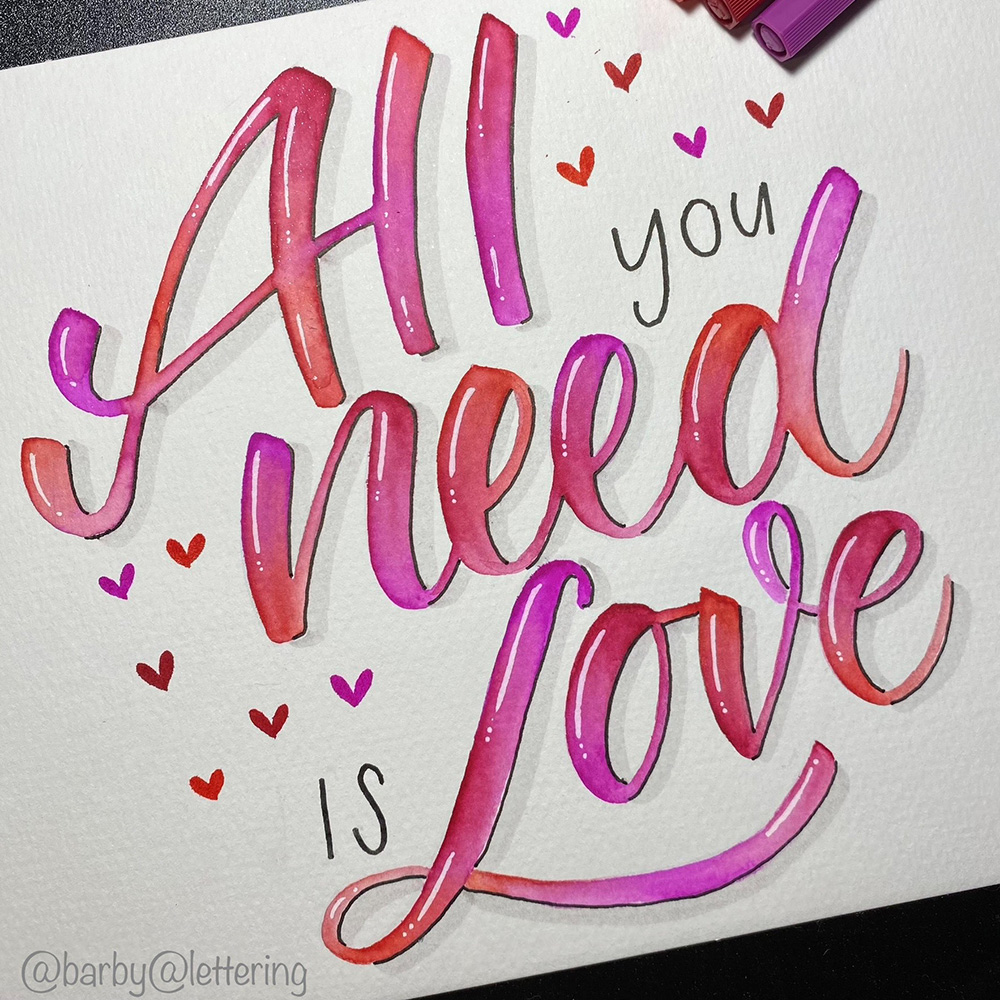 All
you
need
is
Love
@barby@lettering